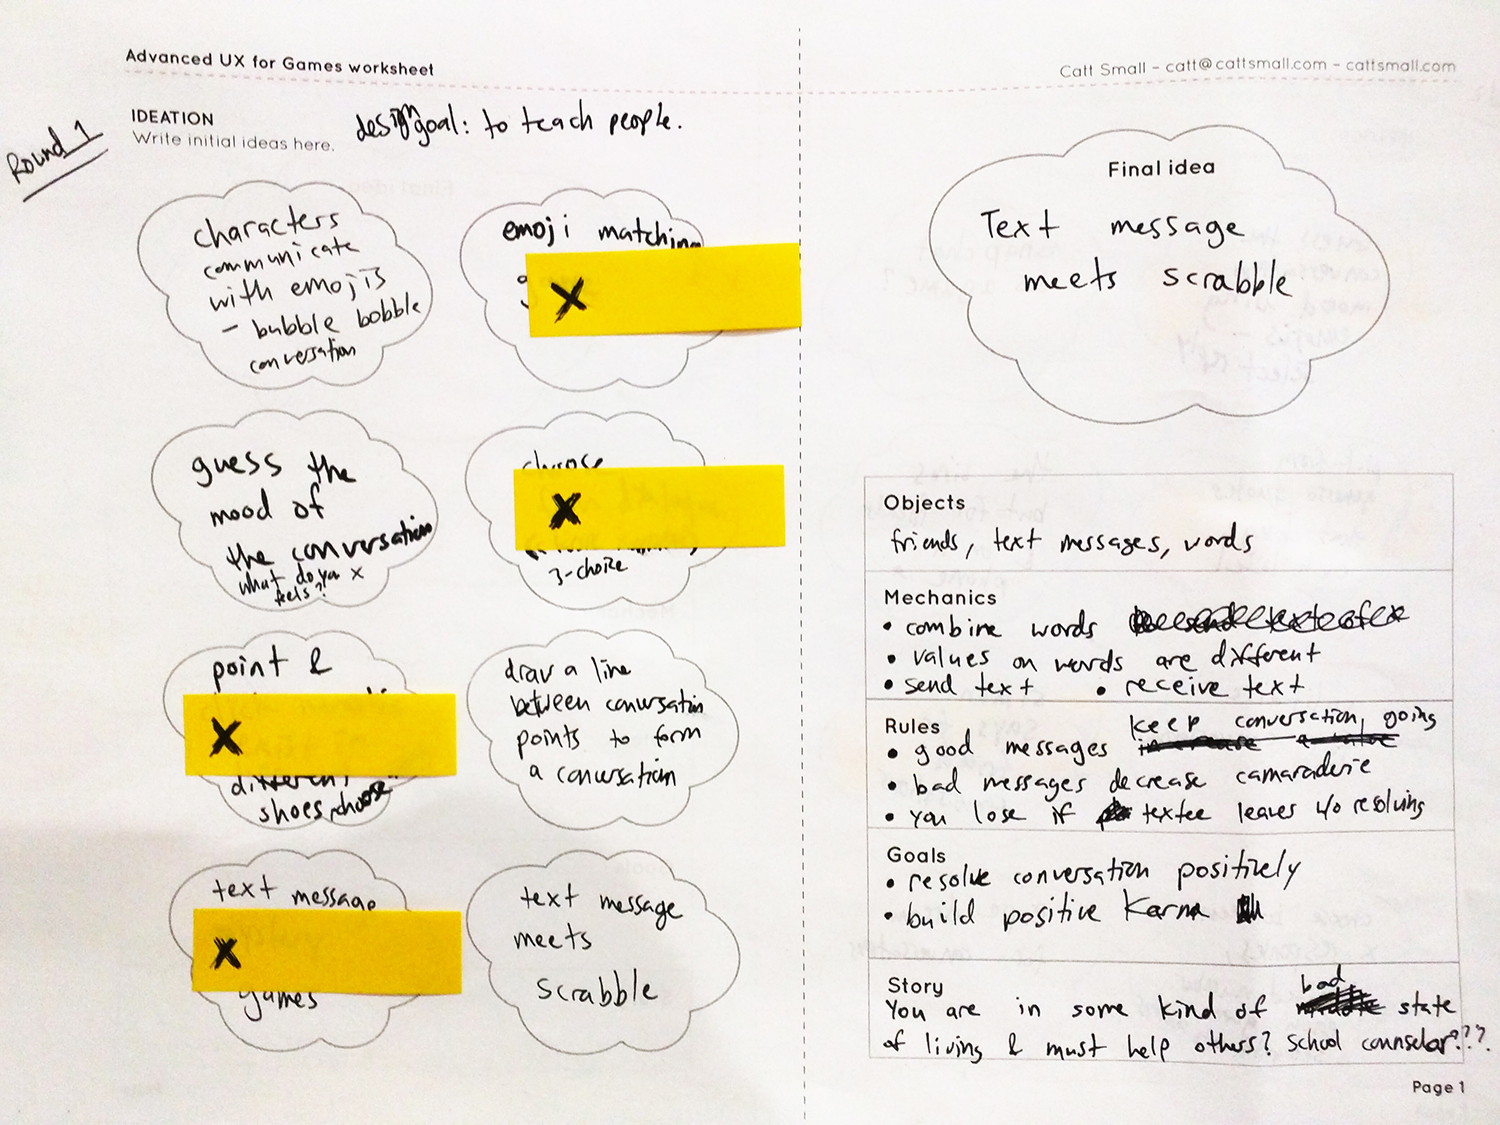 Advanced UX for Games worksheet
Catt Small - catt@cattsmall.com - cattsmall.com
Round 1
IDEATION
Write initial ideas here.
design goal: to teach people.
characters
communicate
with emojis
- bubble bobble
conversation
emoji matching
X
guess the
mood of
the conversation
what do you x
feels?
choose
X
3-choice
point &
X
different,
shoes, choose
draw a line
between conversation
points to form
a conversation
text message
X
games
text message
meets
scrabble
Final idea
Text message
meets scrabble
Objects
friends, text messages, words
Mechanics
• combine words
• values on words are different
• send text • receive text
Rules
keep conversation going
• good messages
• bad messages decrease camaraderie
• you lose if textee leaves w/o resolving
Goals
• resolve conversation positively
• build positive Karma
Story
bad
You are in some kind of state
of living & must help others? School counselor???
Page 1